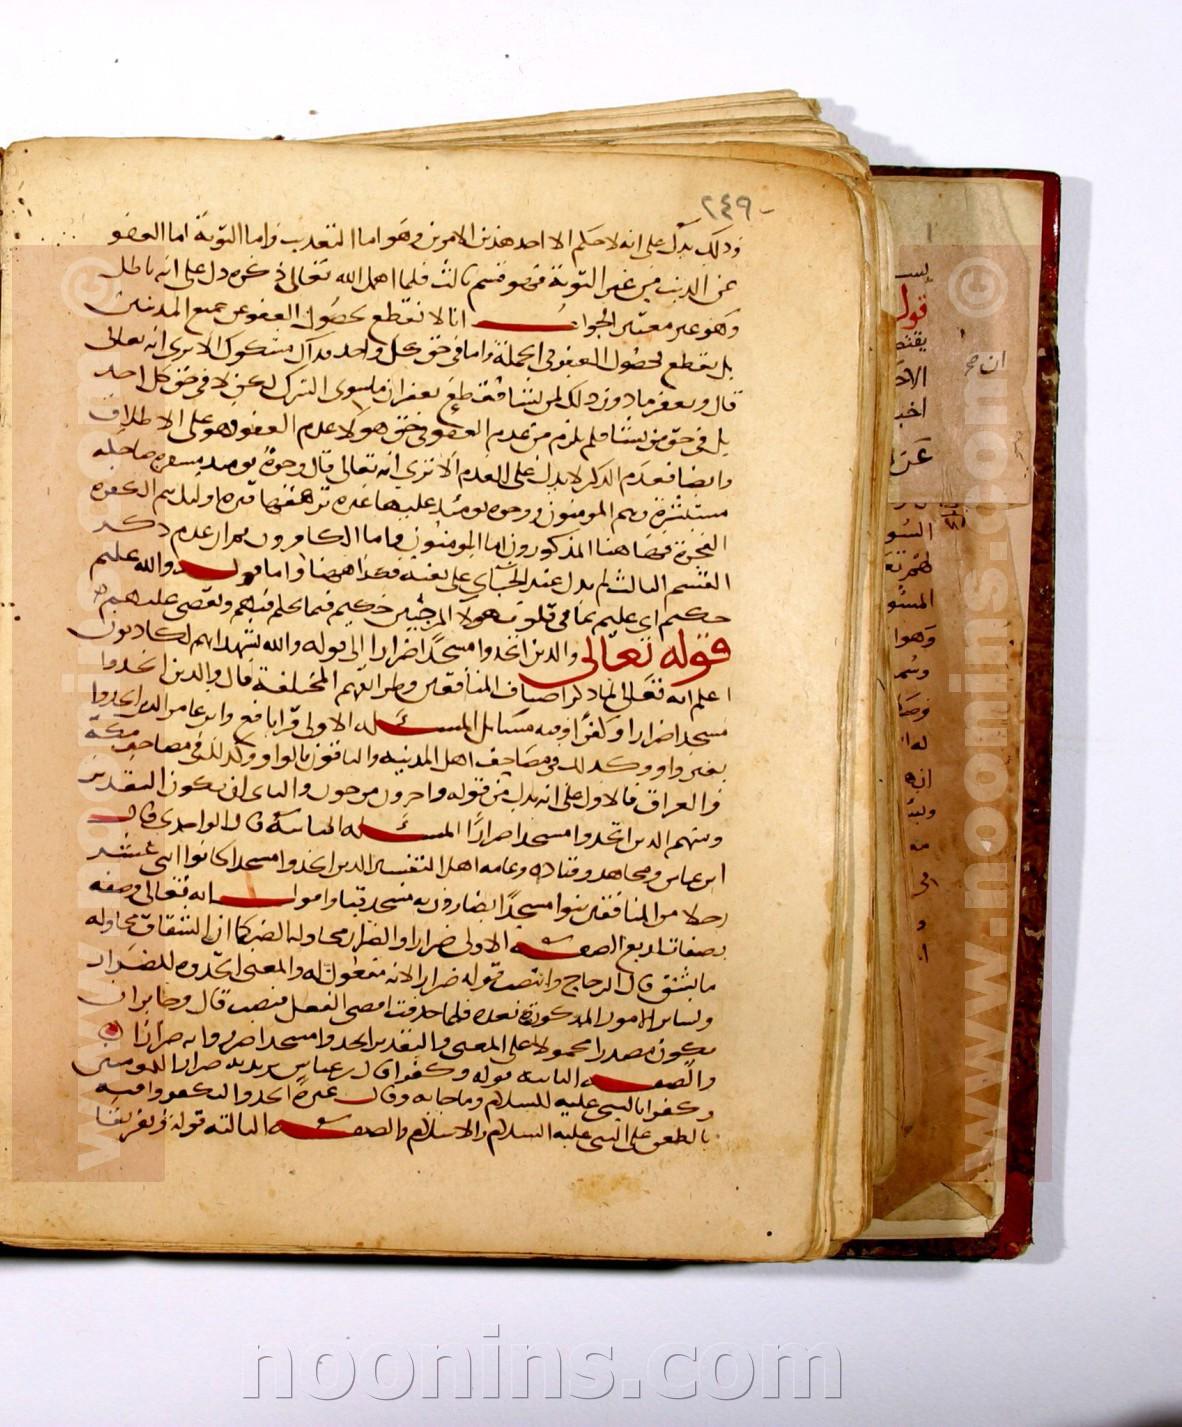 ٢٤٩
وذلك يدل على انه لا حكم الا احد هذين الامرين وهو اما التعذيب واما التوبة اما العفو
عن الذنب من غير التوبة فهو قسم ثالث فلما اهمل الله تعالى ذكره دل على انه باطل
وهو غير معتبر الجواب انا لا نقطع بحصول العفو عن جميع المذنبين
بل نقطع بحصول العفو في الجملة واما في حق كل واحد فذاك مشكوك الا ترى انه تعالى
قال ويغفر ما دون ذلك لمن يشا فقطع بغفران ما سوى الشرك لكن لا في حق كل احد
بل في حق من يشا فلم يلزم من عدم العفو في حق هولا عدم العفو على الاطلاق
وايضا فعدم الذكر لا يدل على العدم الا ترى انه تعالى قال وجوه يومئذ مسفرة ضاحكة
مستبشرة وهم المومنون ووجوه يومئذ عليها غبره ترهقها قتره اوليك هم الكفره
الفجرة فهاهنا المذكورون اما المومنون واما الكافرون ثم ان عدم ذكر
القسم الثالث لم يدل عند الجباي على نفيه فكذا هاهنا واما قوله والله عليم
حكيم اي عليم بما في قلوب هولا المرجئين حكيم فيما يحكم فيهم ويقضي عليهم
قوله تعالى والذين اتخذوا مسجدا ضرارا الى قوله والله يشهد انهم لكاذبون
اعلم انه تعالى لما ذكر اصناف المنافقين وطرائقهم المختلفة قال والذين اتخذوا
مسجدا ضرارا وكفرا وفيه مسائل المسئلة الاولى قرا نافع وابن عامر الذين اتخذوا
بغير واو وكذلك في مصاحف اهل المدينه والباقون بالواو وكذلك في مصاحف مكة
والعراق فالاول على انه بدل من قوله واخرون مرجون والثاني ان يكون التقدير
ومنهم الذين اتخذوا مسجدا ضرارا المسئلة الثانية قال الواحدي قال
ابن عباس ومجاهد وقتاده وعامه اهل التفسير الذين اتخذوا مسجدا كانوا اثنى عشر
رجلا من المنافقين بنوا مسجدا يضارون به مسجد قبا واقول انه تعالى وصفه
بصفات اربع الصفة الاولى ضرارا والضرار محاولة الضر كما ان الشقاق محاوله
ما يشق قال الزجاج وانتصب قوله ضرارا لانه مفعول له والمعنى اتخذوه للضرار
ولساير الامور المذكورة بعده فلما حذفت افضى الفعل فنصب قال وجايز ان
يكون مصدرا محمولا على المعنى والتقدير اتخذوا مسجدا ضروا به ضرارا
والصفة الثانيه قوله وكفرا قال ابن عباس يريد به ضرارا للمومنين
وكفرا بالنبي عليه السلام وما جا به وقال غيره اتخذوا ليكفروا فيه
بالطعن على النبي عليه السلام والاسلام والصفة الثالثه قوله وتفريقا
قول
www.noonins.com
www.noonins.com
noonins.com